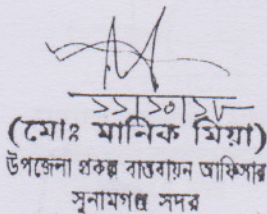 ১১|১০|১৮
(মোঃ মানিক মিয়া)
উপজেলা প্রকল্প বাস্তবায়ন অফিসার
সুনামগঞ্জ সদর